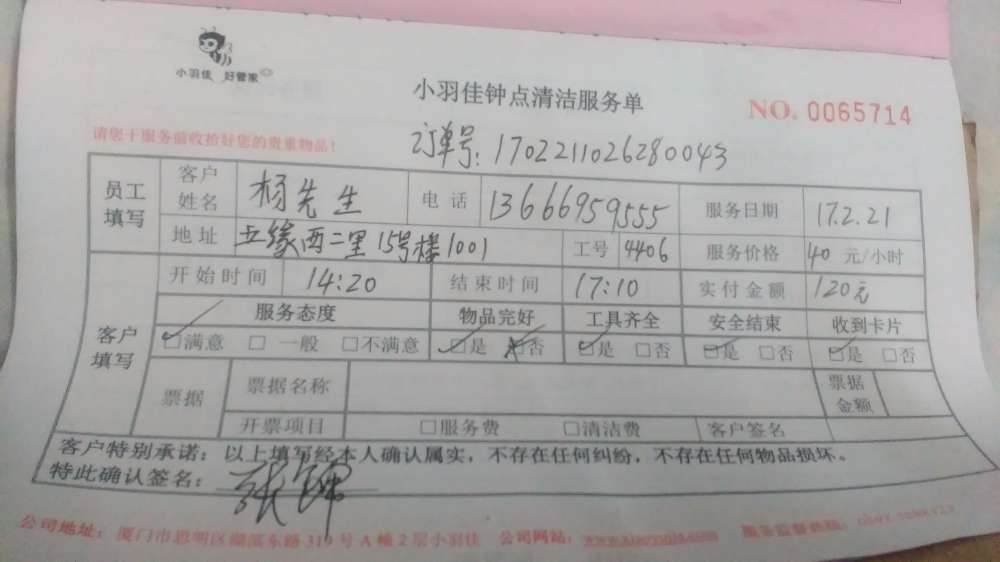 小羽佳 好管家
小羽佳钟点清洁服务单
NO. 0065714
请您于服务前收拾好您的贵重物品!
订单号: 1702211026280043
员工填写 客户姓名 杨先生 电话 13666959555 服务日期 17.2.21
地址 五缘西二里15号楼1001 工号 4406 服务价格 40 元/小时
客户填写 开始时间 14:20 结束时间 17:10 实付金额 120元
服务态度 物品完好 工具齐全 安全结束 收到卡片
☑满意 □一般 □不满意 ☑是 □否 ☑是 □否 ☑是 □否 ☑是 □否
票据 票据名称 票据金额
开票项目 □服务费 □清洁费 客户签名
客户特别承诺: 以上填写经本人确认属实,不存在任何纠纷,不存在任何物品损坏。
特此确认签名:
公司地址: 厦门市思明区湖滨东路319号A幢2层小羽佳 公司网站: 服务监督热线: